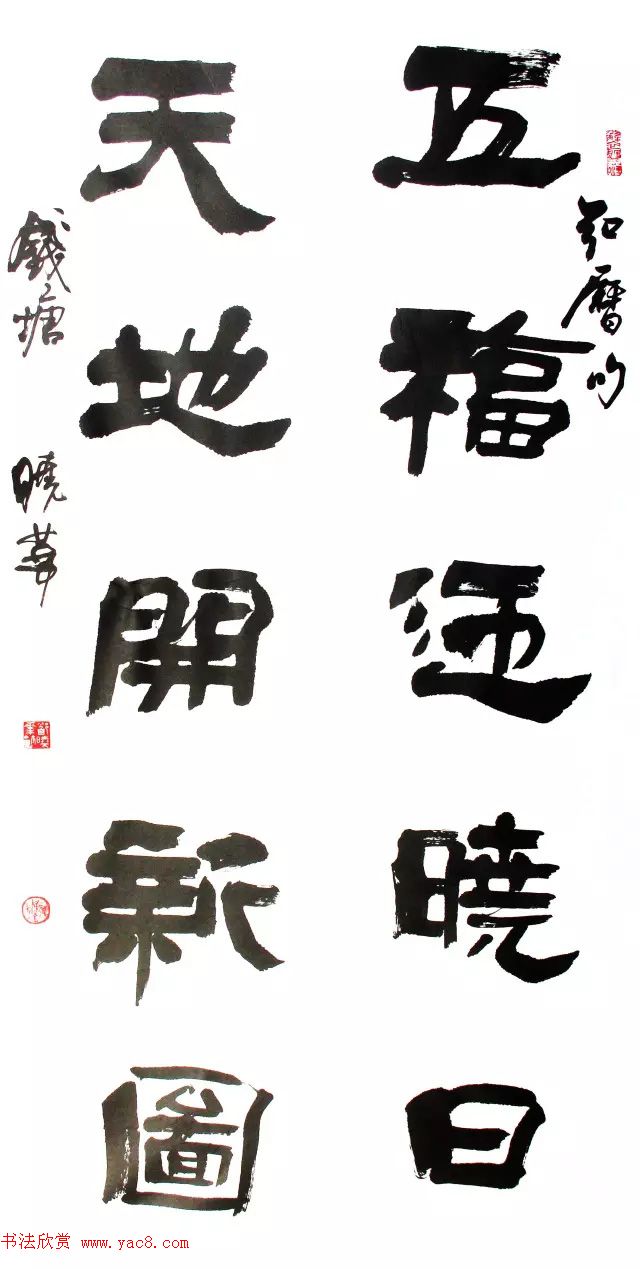 五福迎曉日
天地開新圖
錢塘 曉華
书法欣赏 www.yac8.com